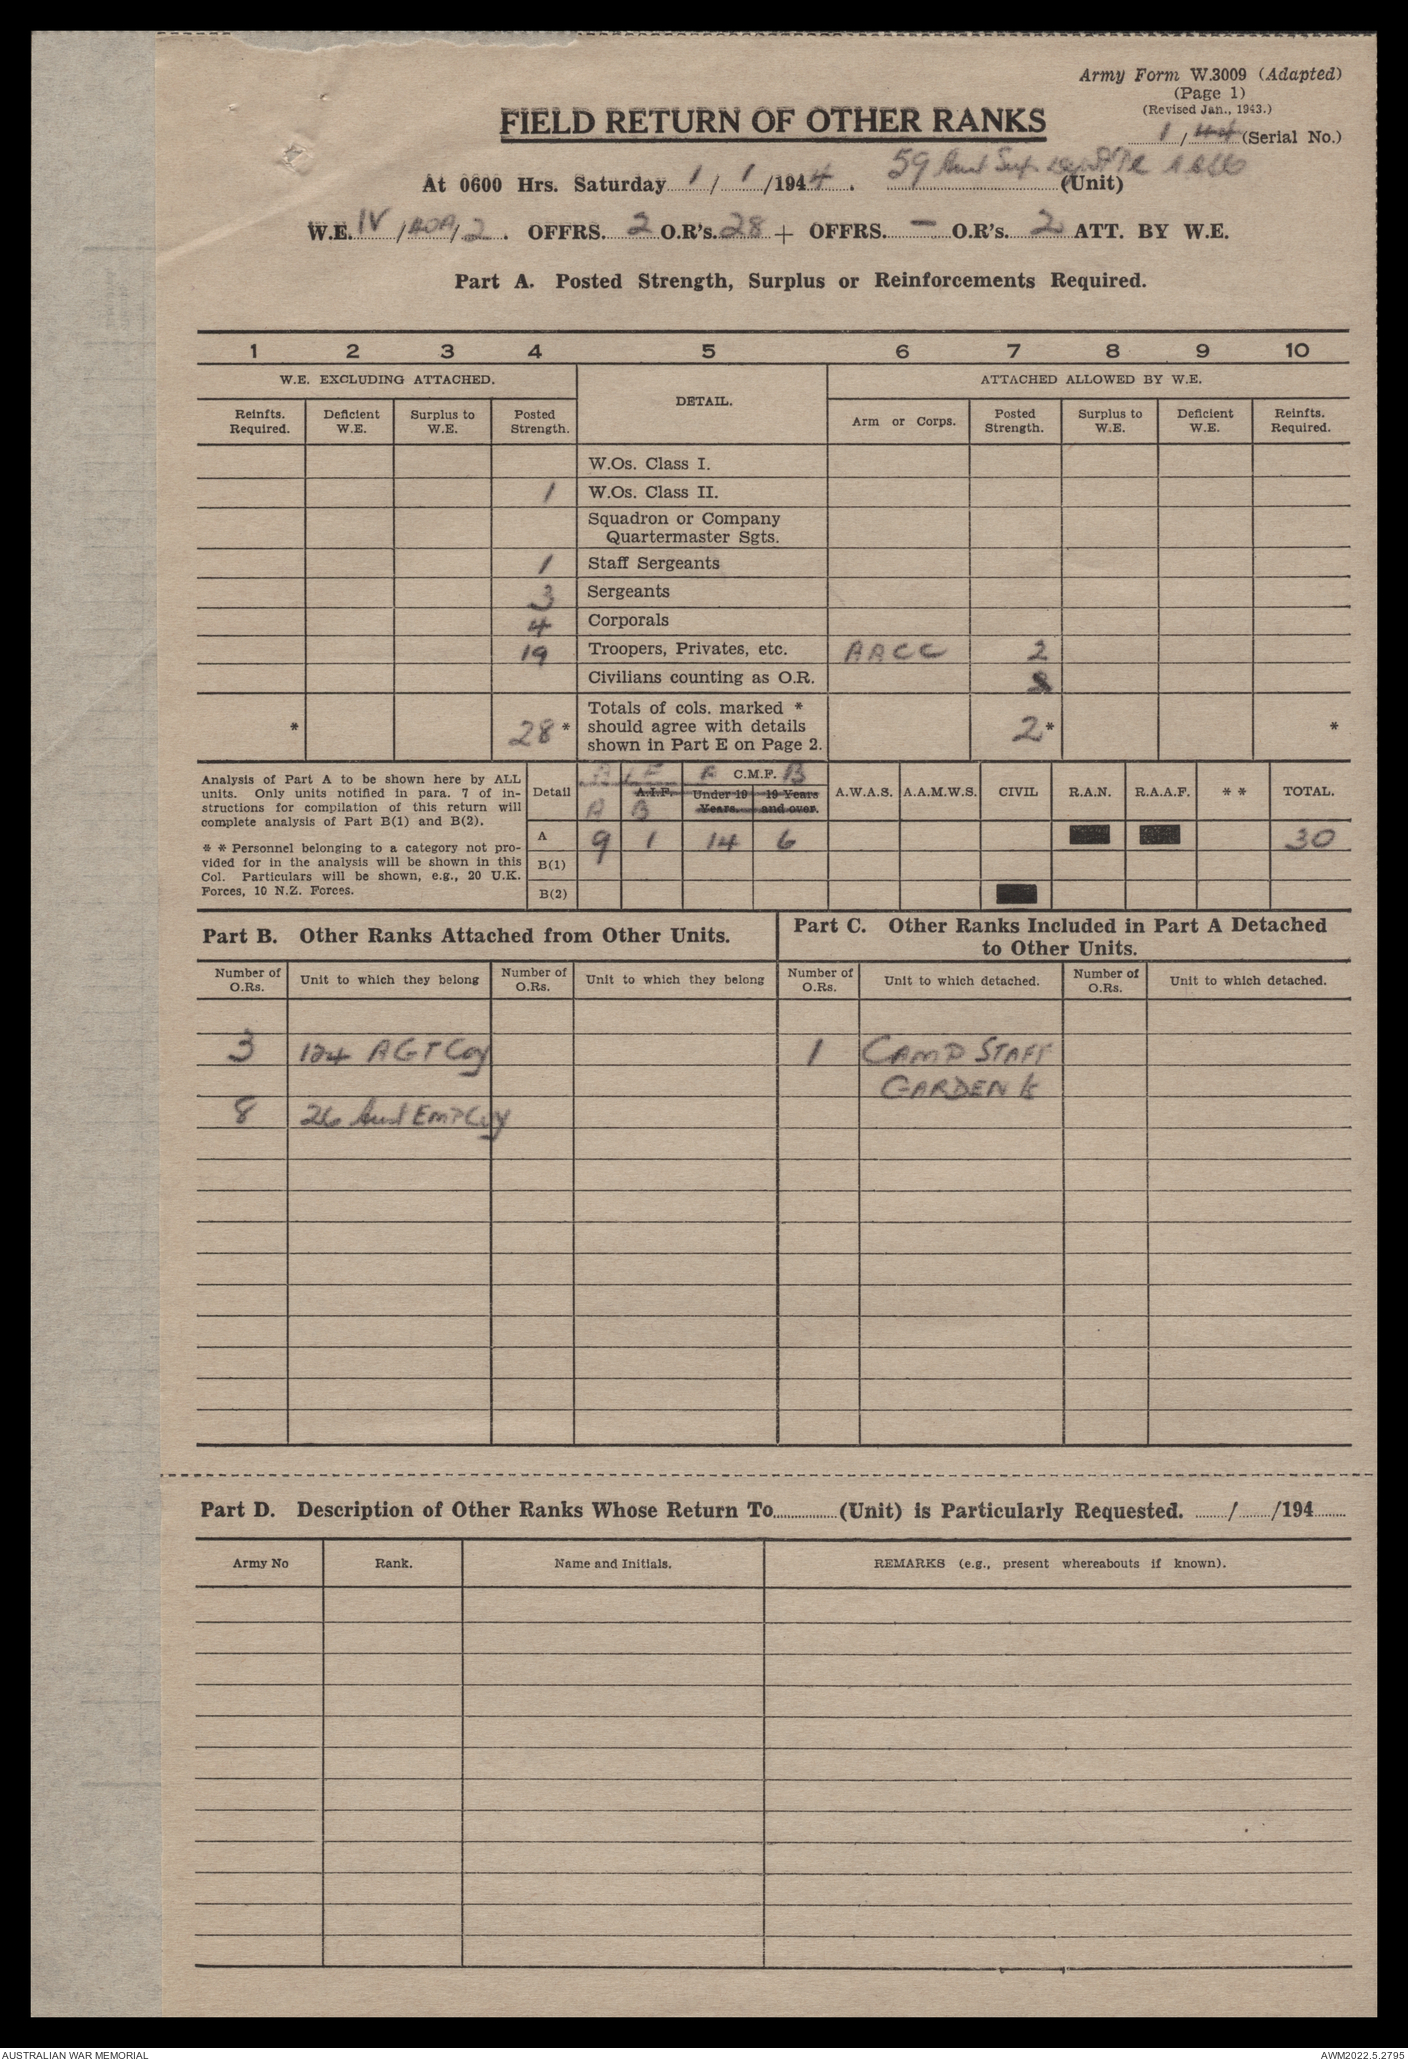 Army Form W.3009 (Adapted)
(Page 1)
(Revised Jan., 1943.)
1/44 (Serial No.)
FIELD RETURN OF OTHER RANKS
59 Aust Sup
At 0600 Hrs. Saturday 1/1/1944. (Unit)
W.E. IV/ /2. OFFRS. 2 O.R's. 28 + OFFRS. - O.R's. 2 ATT. BY W.E.
Part A. Posted Strength, Surplus or Reinforcements Required.
1 2 3 4 5 6 7 8 9 10
W.E. EXCLUDING ATTACHED. DETAIL. ATTACHED ALLOWED BY W.E.
Reinfts. Required. Deficient W.E. Surplus to W.E. Posted Strength. Arm or Corps. Posted Strength. Surplus to W.E. Deficient W.E. Reinfts. Required.
W.Os. Class I.
1 W.Os. Class II.
Squadron or Company
Quartermaster Sgts.
1 Staff Sergeants
3 Sergeants
4 Corporals
19 Troopers, Privates, etc. AACC 2
Civilians counting as O.R.
Totals of cols. marked *
* 28* should agree with details 2* *
shown in Part E on Page 2.
Analysis of Part A to be shown here by ALL
units. Only units notified in para. 7 of in-
structions for compilation of this return will
complete analysis of Part B(1) and B(2).
* * Personnel belonging to a category not pro-
vided for in the analysis will be shown in this
Col. Particulars will be shown, e.g., 20 U.K.
Forces, 10 N.Z. Forces.
A I F A C.M.F. B
Detail A.I.F. Under 19 Years. 19 Years and over. A.W.A.S. A.A.M.W.S. CIVIL R.A.N. R.A.A.F. * * TOTAL.
A B
A 9 1 14 6 30
B(1)
B(2)
Part B. Other Ranks Attached from Other Units.
Part C. Other Ranks Included in Part A Detached
to Other Units.
Number of O.Rs. Unit to which they belong Number of O.Rs. Unit to which they belong Number of O.Rs. Unit to which detached. Number of O.Rs. Unit to which detached.
3 124 AGT Coy 1 CAMP STAFF
GARDEN
8 26 Aust EMP Coy
Part D. Description of Other Ranks Whose Return To (Unit) is Particularly Requested. / /194
Army No Rank. Name and Initials. REMARKS (e.g., present whereabouts if known).
AUSTRALIAN WAR MEMORIAL AWM2022.5.2795